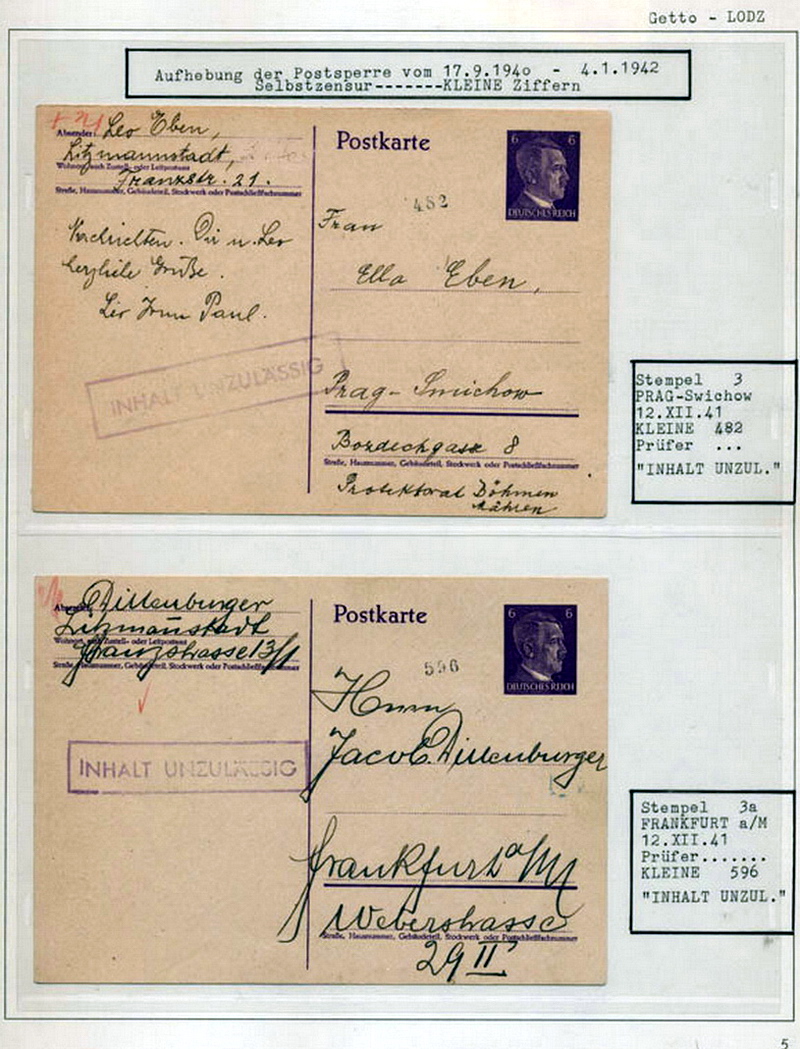 Getto - LODZ
Aufhebung der Postsperre vom 17.9.1940 - 4.1.1942
Selbstzensur-------KLEINE Ziffern
Absender: Leo Eben,
Litzmannstadt,
Wohnort, auch Zustell- oder Leitpostamt
Franzstr. 21.
Straße, Hausnummer, Gebäudeteil, Stockwerk oder Postschließfachnummer
Nachrichten. Dir u. Leo
herzliche Grüße.
Paul.
INHALT UNZULÄSSIG
Postkarte
6 6
DEUTSCHES REICH
482
Frau
Ella Eben,
Prag - Smichow
Bozdechgasse 8
Straße, Hausnummer, Gebäudeteil, Stockwerk oder Postschließfachnummer
Protektorat Böhmen
Mähren
Stempel 3
PRAG-Swichow
12.XII.41
KLEINE 482
Prüfer ...
"INHALT UNZUL."
Absender: Dillenburger
Litzmannstadt
Wohnort, auch Zustell- oder Leitpostamt
Franzstrasse 13/1
Straße, Hausnummer, Gebäudeteil, Stockwerk oder Postschließfachnummer
INHALT UNZULÄSSIG
Postkarte
6 6
DEUTSCHES REICH
596
Herrn
Jacob Dillenburger
Frankfurt a/M
Weberstrasse
Straße, Hausnummer, Gebäudeteil, Stockwerk oder Postschließfachnummer
29 II
Stempel 3a
FRANKFURT a/M
12.XII.41
Prüfer.......
KLEINE 596
"INHALT UNZUL."
5